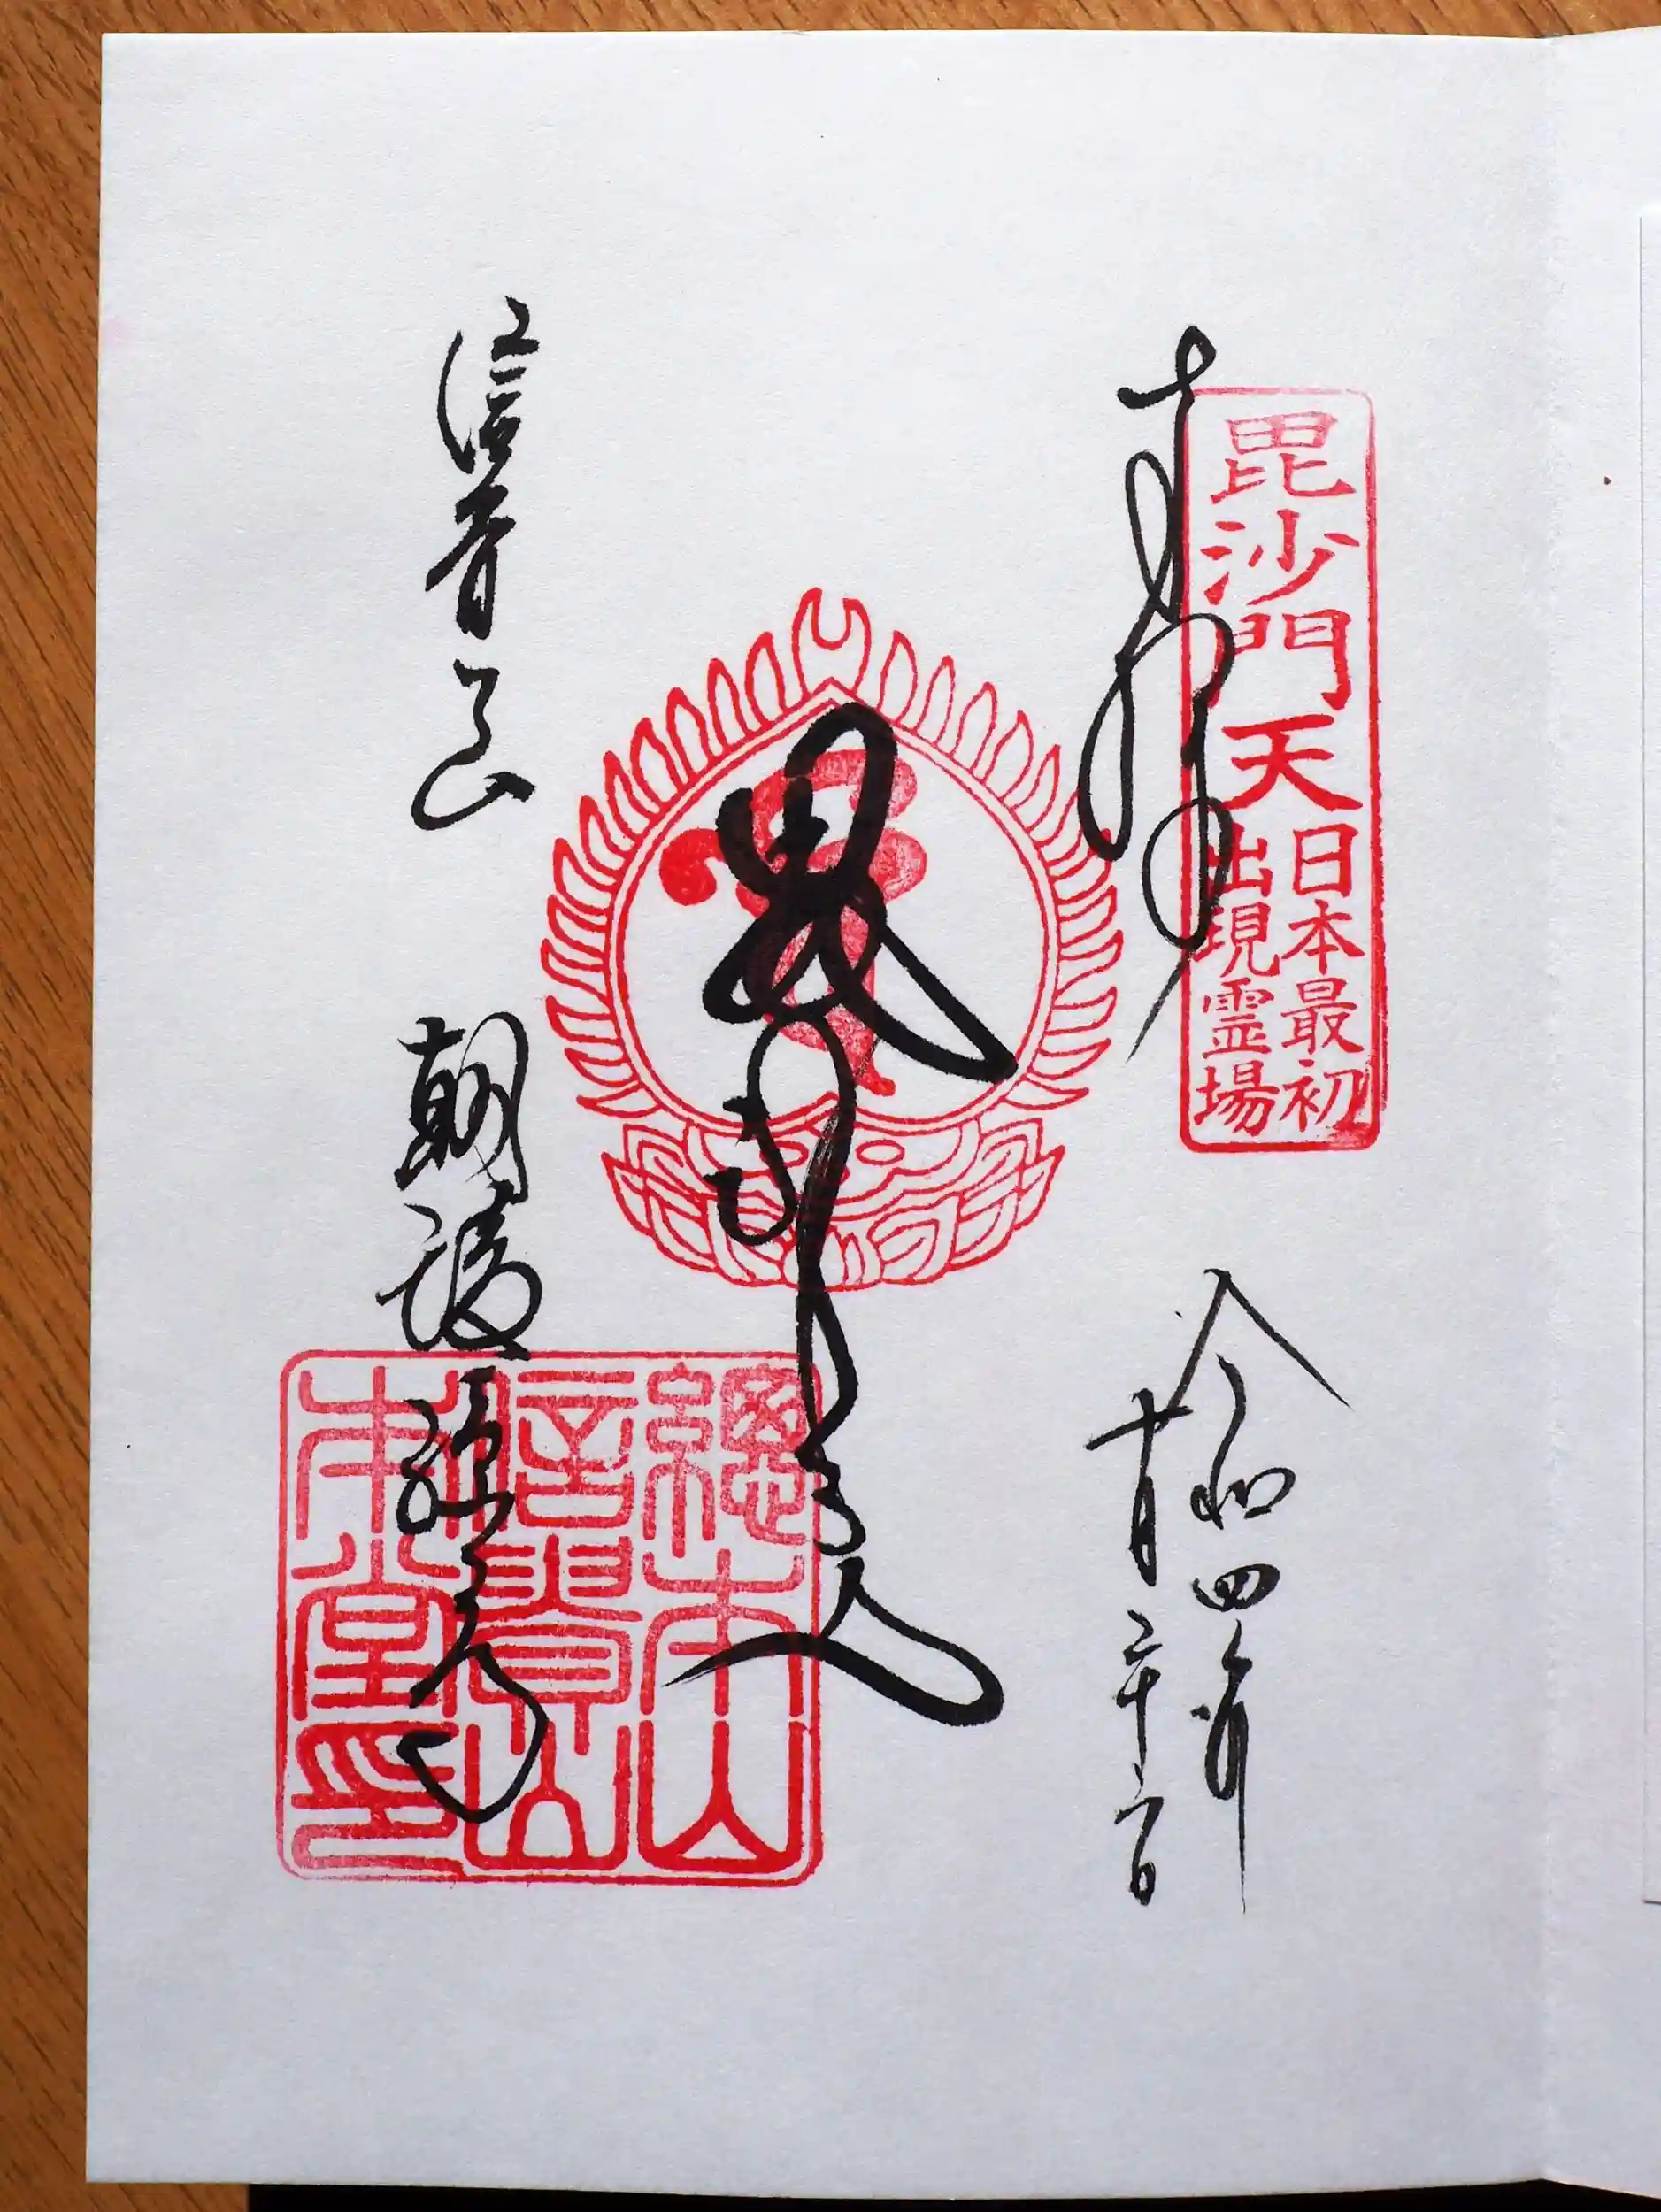 奉拝
毘沙門天
日本最初
出現霊場
令和四年
十月
毘沙門天
信貴山 朝護孫子寺
總本山
信貴山
本堂印